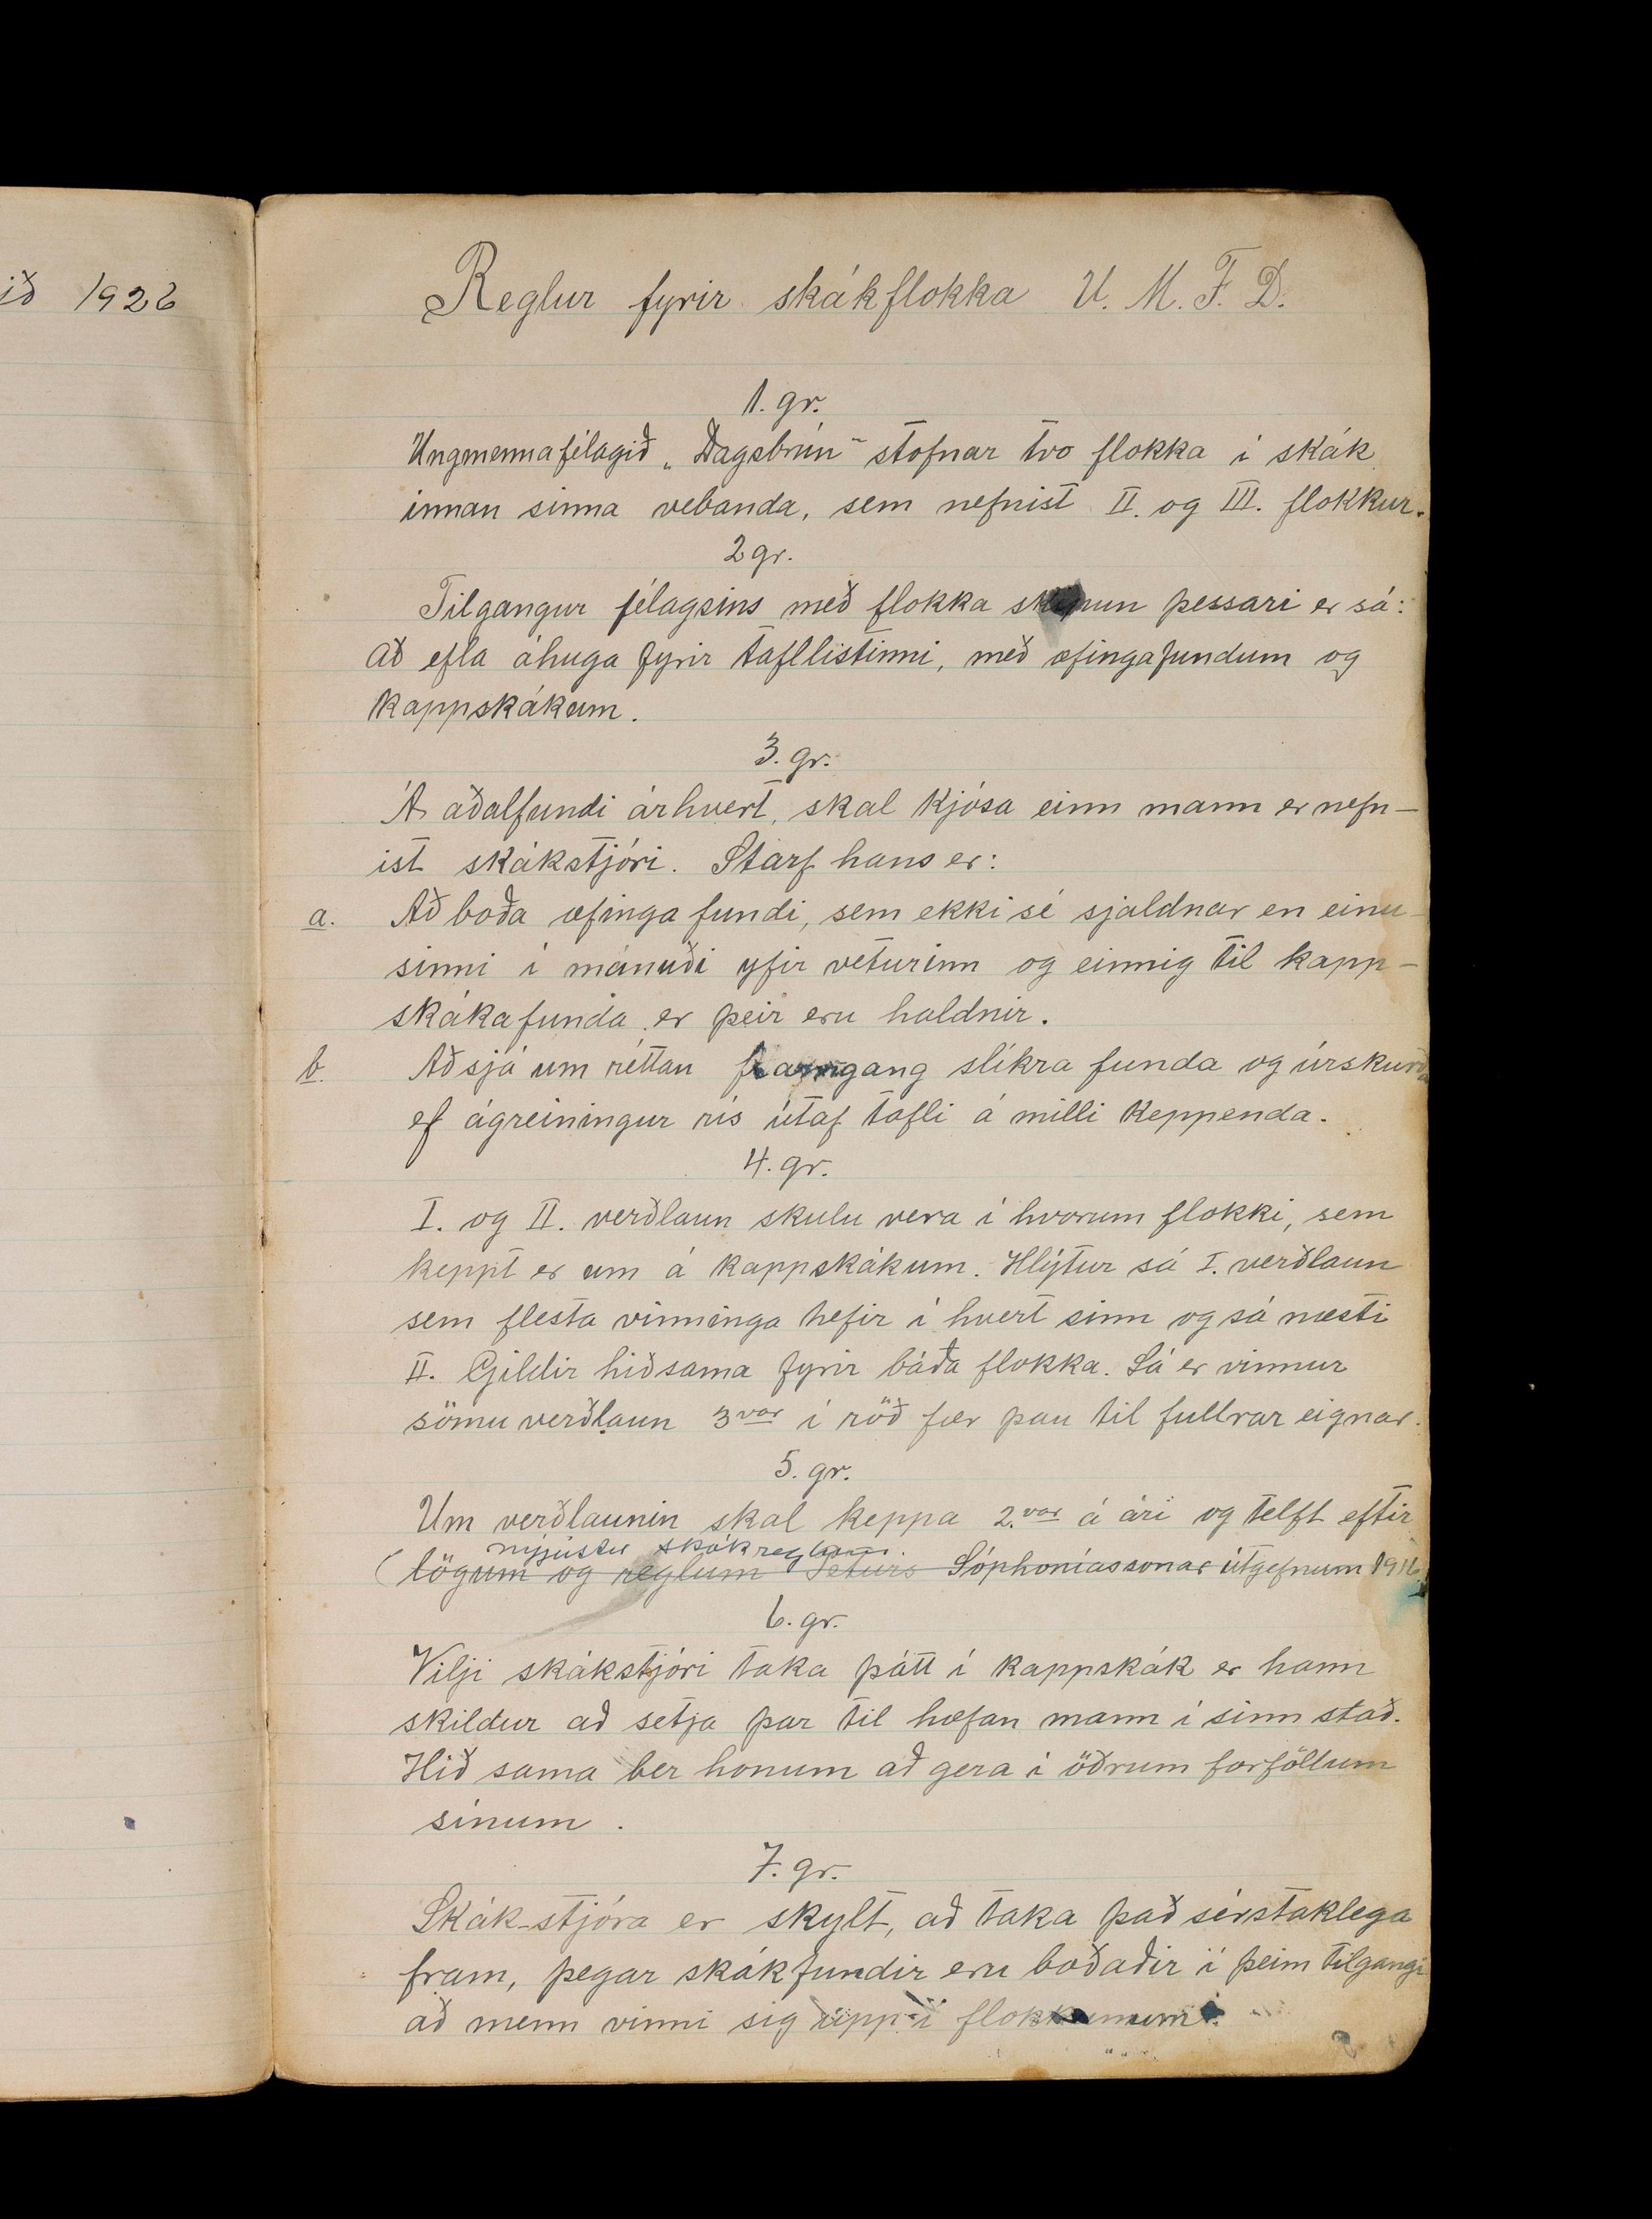 ið 1926
Reglur fyrir skákflokka U. M. F. D.
1. gr.
Ungmennafélagið „Dagsbrún“ stofnar tvo flokka í skák
innan sinna vebanda, sem nefnist II. og III. flokkur.
2 gr.
Tilgangur félagsins með flokka skipun þessari er sá:
að efla áhuga fyrir tafllistinni, með æfingafundum og
kappskákum.
3. gr.
Á aðalfundi árhvert, skal kjósa einn mann er nefn-
ist skákstjóri. Starf hans er:
a. Að boða æfinga fundi, sem ekki sé sjaldnar en einu-
sinni í mánuði yfir veturinn og einnig til kapp-
skákafunda er þeir eru haldnir.
b. Að sjá um réttan framgang slíkra funda og úrskurða
ef ágreiningur rís útaf tafli á milli keppenda.
4. gr.
I. og II. verðlaun skulu vera í hvorum flokki, sem
keppt er um á kappskákum. Hlýtur sá I. verðlaun
sem flesta vinninga hefir í hvert sinn og sá næsti
II. Gildir hiðsama fyrir báða flokka. Sá er vinnur
sömu verðlaun 3var í röð fær þau til fullrar eignar.
5. gr.
Um verðlaunin skal keppa 2.var á ári og telft eftir
nýjustu skákreglum.
(lögum og reglum Péturs Sóphoníassonar útgefnum 1916.
6. gr.
Vilji skákstjóri taka þátt í kappskák er hann
skildur að setja þar til hæfan mann í sinn stað.
Hið sama ber honum að gera í öðrum forföllum
sínum.
7. gr.
Skák-stjóra er skylt, að taka það sérstaklega
fram, þegar skákfundir eru boðaðir í þeim tilgangi
að menn vinni sig upp í flokkunum.